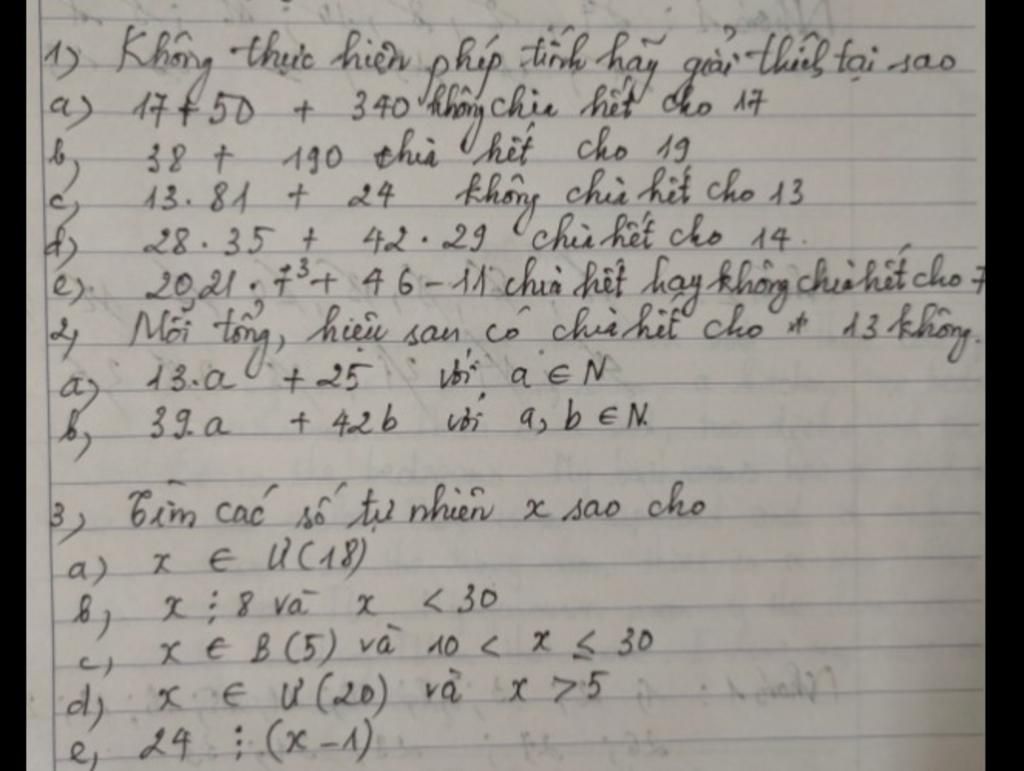 1) Không thực hiện phép tính hãy giải thích tại sao
a) 17 + 50 + 340 không chia hết cho 17
b, 38 + 190 chia hết cho 19
c, 13.81 + 24 không chia hết cho 13
d) 28.35 + 42.29 chia hết cho 14.
e). 20.21.7³ + 46 - 11 chia hết hay không chia hết cho 7
2, Mỗi tổng, hiệu sau có chia hết cho 13 không.
a, 13.a + 25 với a ∈ N
b, 39.a + 42b với a, b ∈ N.
3, Tìm các số tự nhiên x sao cho
a) x ∈ Ư(18)
b, x ⋮ 8 và x < 30
c, x ∈ B(5) và 10 < x ≤ 30
d) x ∈ Ư(20) và x > 5
e, 24 ⋮ (x - 1)